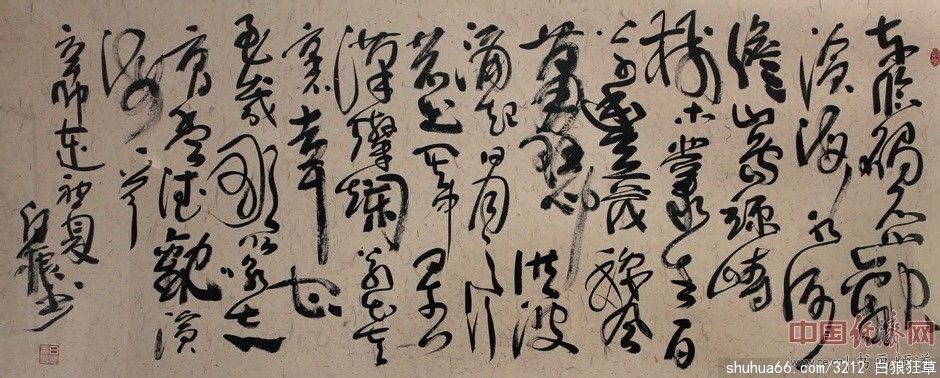 東臨碣石以觀
滄海水何
澹山島竦峙
樹木叢生百
草豐茂秋風
蕭瑟洪波
涌起日月之行
若出其中星
漢燦爛若出其
裏幸甚
至哉歌以詠志
曹孟德觀滄
海一首
白狼書
中国经济网
shuhua66.com/3212 白狼狂草